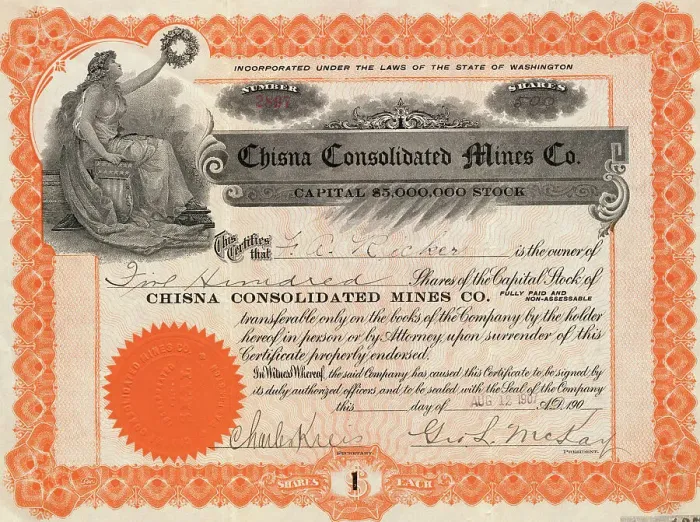 INCORPORATED UNDER THE LAWS OF THE STATE OF WASHINGTON
NUMBER SHARES
500
Chisna Consolidated Mines Co.
CAPITAL $5,000,000 STOCK
This Certifies that is the owner of
Five Hundred Shares of the Capital Stock of
CHISNA CONSOLIDATED MINES CO. FULLY PAID AND NON-ASSESSABLE
transferable only on the books of the Company by the holder
hereof in person or by Attorney upon surrender of this
Certificate properly endorsed.
In Witness Whereof, the said Company has caused this Certificate to be signed by
its duly authorized officers and to be sealed with the Seal of the Company
this day of AUG 12 1907 A.D. 190
Geo. L. McKay
SECRETARY. PRESIDENT.
SHARES $1 EACH